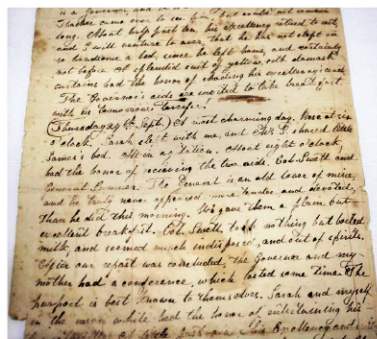 is a governor, and
came over to see him, but would not remove
long. About half past ten his excellency retired to rest,
and I will venture to aver, that he has not slept in
so handsome a bed, since he left home, and certainly
not before. A splendid suit of yellow silk damask
curtains had the honor of shading his excellency
The Governor's aids are invited to take breakfast
with us tomorrow.
Thursday 4th Sept. A most charming day. Rose at six
o'clock. Sarah slept with me, and shared little
James's bed. All in agitation. About eight o'clock,
had the honor of receiving the two aids, Col. Swett and
General. The General is an old lover of mine,
and he truly never appeared more tender and devoted,
than he did this morning. We gave them a plain but
excellent breakfast. Col. Swett, took nothing but boiled
milk, and seemed much indisposed, and out of spirits.
After our repast was concluded, the Governor and my
mother had a conference, which lasted some time. The
purport is best known to themselves. Sarah and myself
in the mean while had the honor of entertaining his
Excellency and